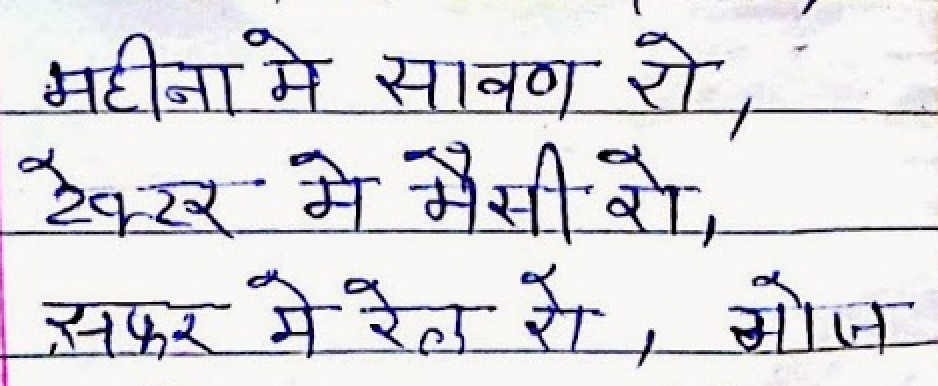 महीना मे सावण रो,
टेक्टर मे मैसी रो,
सफर मे रेल रो, मोज